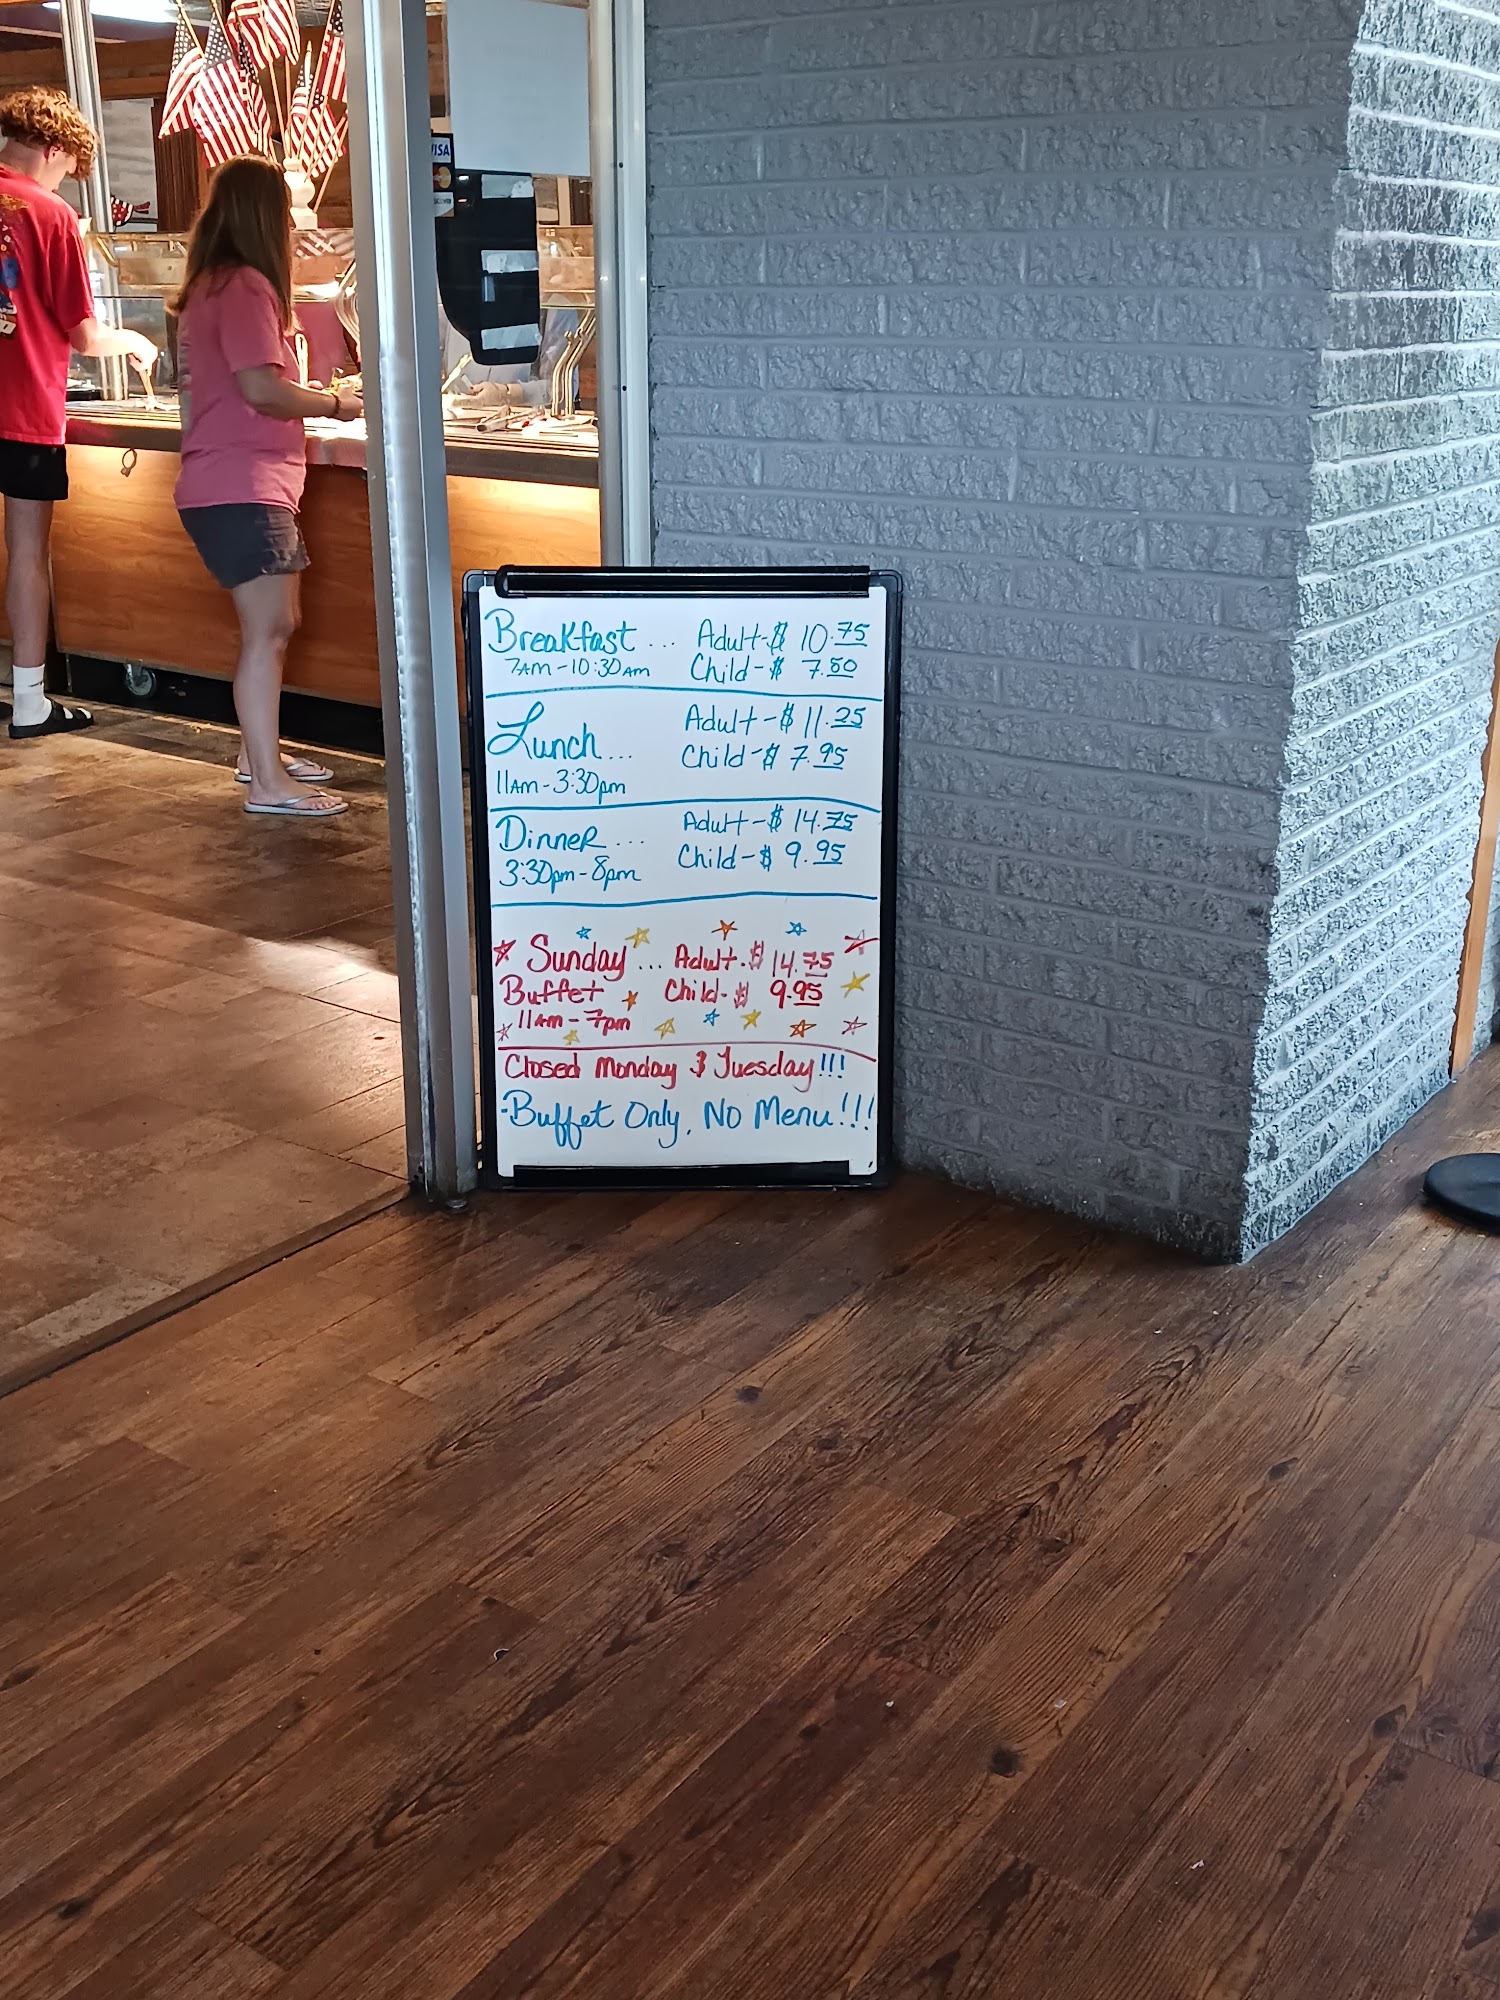 VISA
Breakfast ... Adult-$ 10.75
7AM-10:30AM Child-$ 7.50
Lunch... Adult-$ 11.25
Child-$ 7.95
11AM-3:30pm
Dinner... Adult-$ 14.75
3:30pm-8pm Child-$ 9.95
Sunday ... Adult-$ 14.75
Buffet Child-$ 9.95
11am-7pm
Closed Monday & Tuesday!!!
-Buffet Only, No Menu!!!